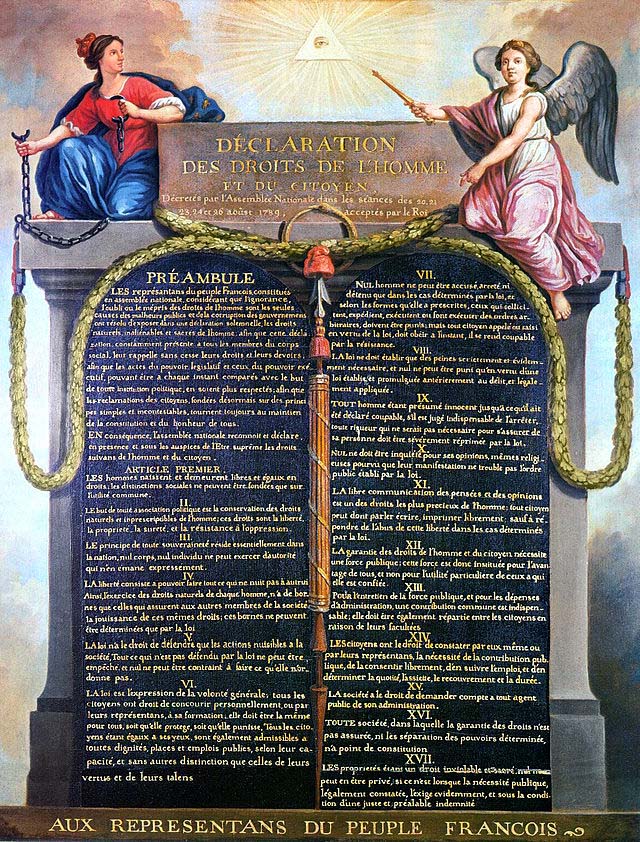 DÉCLARATION
DES DROITS DE L'HOMME
ET DU CITOYEN,
Décrétés par l'Assemblée Nationale dans les séances des 20, 21
23, 24 et 26 août 1789,
acceptés par le Roi
PRÉAMBULE
LES représentans du peuple François, constitués
en assemblée nationale, considérant que l'ignorance,
l'oubli ou le mépris des droits de l'homme sont les seules
causes des malheurs publics et de la corruption des gouvernemens
ont résolu d'exposer dans une déclaration solemnelle, les droits
naturels, inaliénables et sacrés de l'homme; afin que cette décla
ration, constamment présente à tous les membres du corps
social, leur rappelle sans cesse leurs droits et leurs devoirs;
afin que les actes du pouvoir législatif et ceux du pouvoir exé
cutif, pouvant être à chaque instant comparés avec le but
de toute institution politique, en soient plus respectés; afin que
les reclamations des citoyens, fondées désormais sur des princi
pes simples et incontestables, tournent toujours au maintien
de la constitution et du bonheur de tous.
EN conséquence, l'assemblée nationale reconnoit et déclare,
en presence et sous les auspices de l'Etre suprême les droits
suivans de l'homme et du citoyen.
ARTICLE PREMIER.
LES hommes naissent et demeurent libres et égaux en
droits; les distinctions sociales ne peuvent être fondées que sur
l'utilité commune.
II.
LE but de toute association politique est la conservation des droits
naturels et inprescriptibles de l'homme; ces droits sont la liberté,
la propriété, la sureté, et la résistance à l'oppression.
III.
LE principe de toute souveraineté réside essentiellement dans
la nation, nul corps, nul individu ne peut exercer d'autorité
qui n'en émane expressement.
IV.
LA liberté consiste à pouvoir faire tout ce qui ne nuit pas à autrui
Ainsi, l'exercice des droits naturels de chaque homme, n'a de bor
nes que celles qui assurent aux autres membres de la société
la jouissance de ces mêmes droits; ces bornes ne peuvent
être déterminées que par la loi
V.
LA loi n'a le droit de défendre que les actions nuisibles à la
société. Tout ce qui n'est pas défendu par la loi ne peut être
empêché, et nul ne peut être contraint à faire ce qu'elle n'or
donne pas.
VI.
LA loi est l'expression de la volonté générale; tous les
citoyens ont droit de concourir personnellement, ou par
leurs représentans, à sa formation; elle doit être la même
pour tous, soit qu'elle protege, soit qu'elle punisse. Tous les cito
yens étant égaux à ses yeux, sont également admissibles à
toutes dignités, places et emplois publics, selon leur ca
pacité, et sans autres distinction que celles de leurs
vertus et de leurs talens
VII.
NUL homme ne peut être accusé, arreté, ni
détenu que dans les cas déterminés par la loi, et
selon les formes qu'elle a prescrites, ceux qui sollici
tent, expédient, exécutent ou font exécuter des ordres ar
bitraires, doivent être punis; mais tout citoyen appelé ou saisi
en vertu de la loi, doit obéir à l'instant, il se rend coupable
par la résistance.
VIII.
LA loi ne doit établir que des peines strictement et évidem
ment nécessaire, et nul ne peut être puni qu'en vertu d'une
loi établie, et promulguée antérierement au délit, et légale
ment appliquée.
IX.
TOUT homme étant présumé innocent jusqu'à ce qu'il ait
été déclaré coupable, s'il est jugé indispensable de l'arrêter,
toute rigueur qui ne serait pas nécessaire pour s'assurer de
sa personne doit être sévèrement réprimée par la loi.
X.
NUL ne doit être inquiété pour ses opinions, mêmes religi
euses pourvu que leur manifestation ne trouble pas l'ordre
public établi par la loi.
XI.
LA libre communication des pensées et des opinions
est un des droits les plus precieux de l'homme; tout citoyen
peut donc parler écrire, imprimer librement; sauf à ré
pondre de l'abus de cette liberté dans les cas déterminés
par la loi.
XII.
LA garantie des droits de l'homme et du citoyen nécessite
une force publique; cette force est donc instituée pour l'avan
tage de tous, et non pour l'utilité particulière de ceux a qui
elle est confiée.
XIII.
Pour l'entretien de la force publique, et pour les dépenses
d'administration, une contribution commune est indispen
sable; elle doit être également répartie entre les citoyens en
raison de leurs facultées
XIV.
LES citoyens ont le droit de constater par eux même ou
par leurs représentans, la nécessité de la contribution pub
lique, de la consentir librement, d'en suivre l'emploi, et d'en
déterminer la quotité, l'assiette, le recouvrement et la durée.
XV.
LA société a le droit de demander compte a tout agent
public de son administration.
XVI.
TOUTE société, dans laquelle la garantie des droits n'est
pas assurée, ni les séparation des pouvoirs déterminée,
n'a point de constitution
XVII.
LES propriétés étant un droit inviolable et sacré, nul ne
peut en être privé, si ce n'est lorsque la nécessité publique,
légalement constatée, l'exige evidemment, et sous la condi
tion d'une juste et préalable indemnité
AUX REPRESENTANS DU PEUPLE FRANCOIS